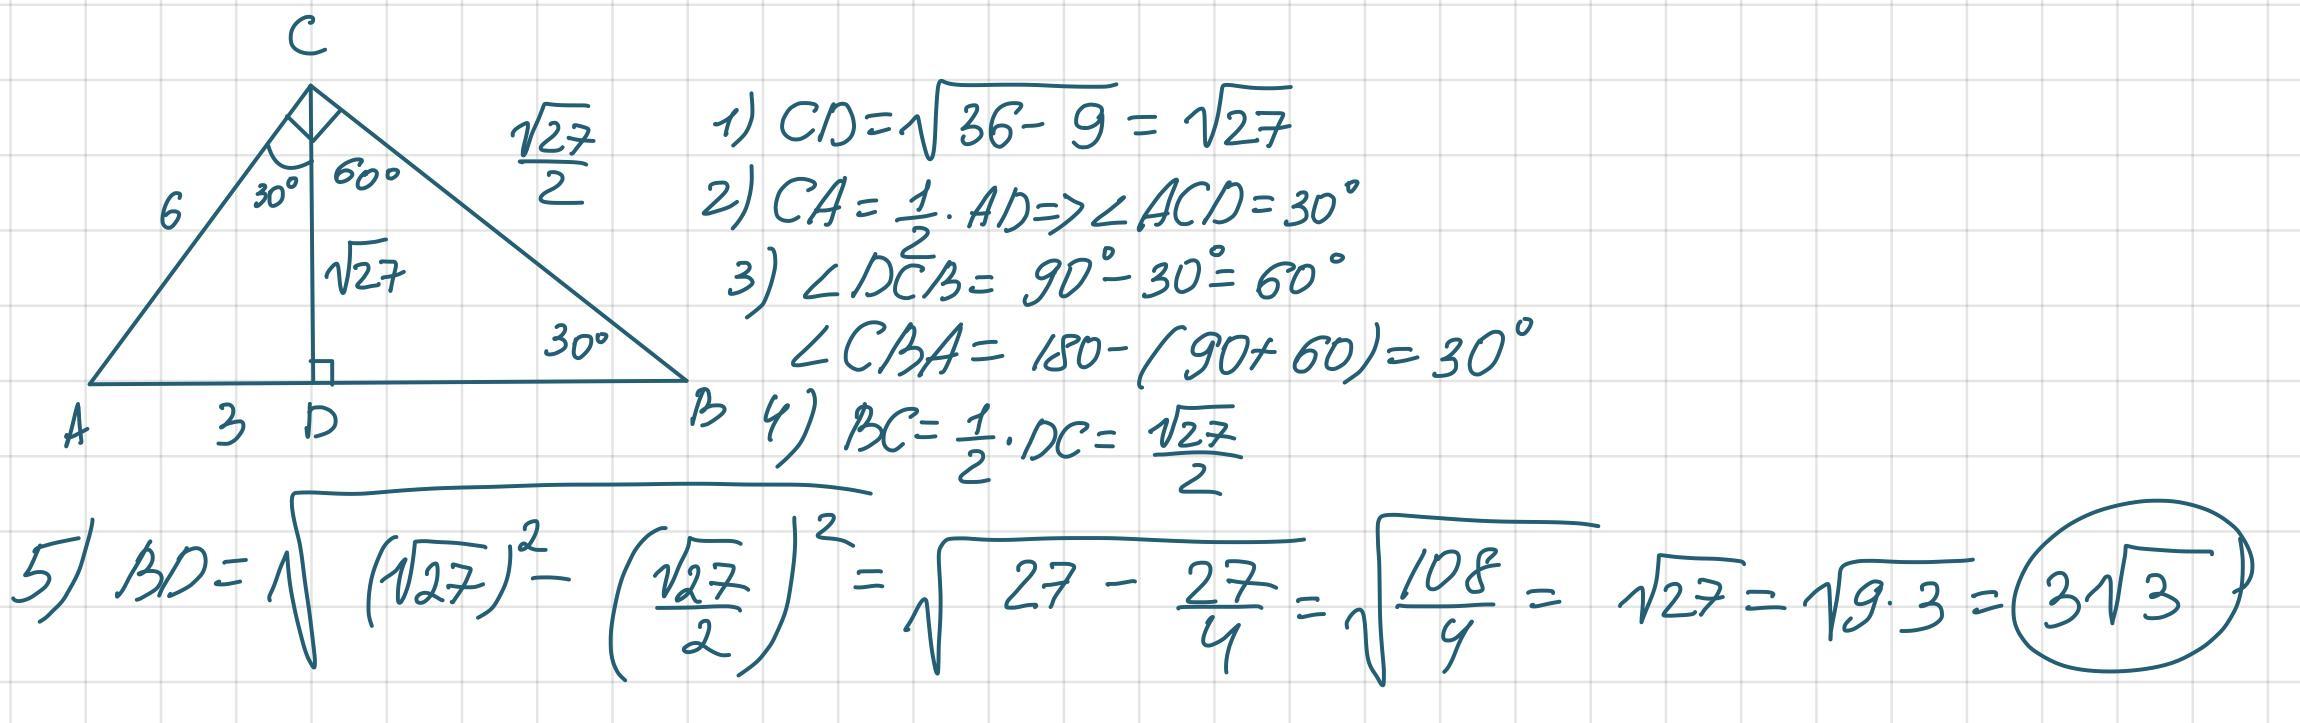 C
6
30°
60°
√27
30°
√27/2
A
3
D
B
1) CD = √(36 - 9) = √27
2) CA = 1/2 · AD => ∠ACD = 30°
3) ∠DCB = 90° - 30° = 60°
∠CBA = 180 - (90 + 60) = 30°
4) BC = 1/2 · DC = √27/2
5) BD = √((√27)² - (√27/2)²) = √(27 - 27/4) = √(108/4) = √27 = √(9 · 3) = 3√3